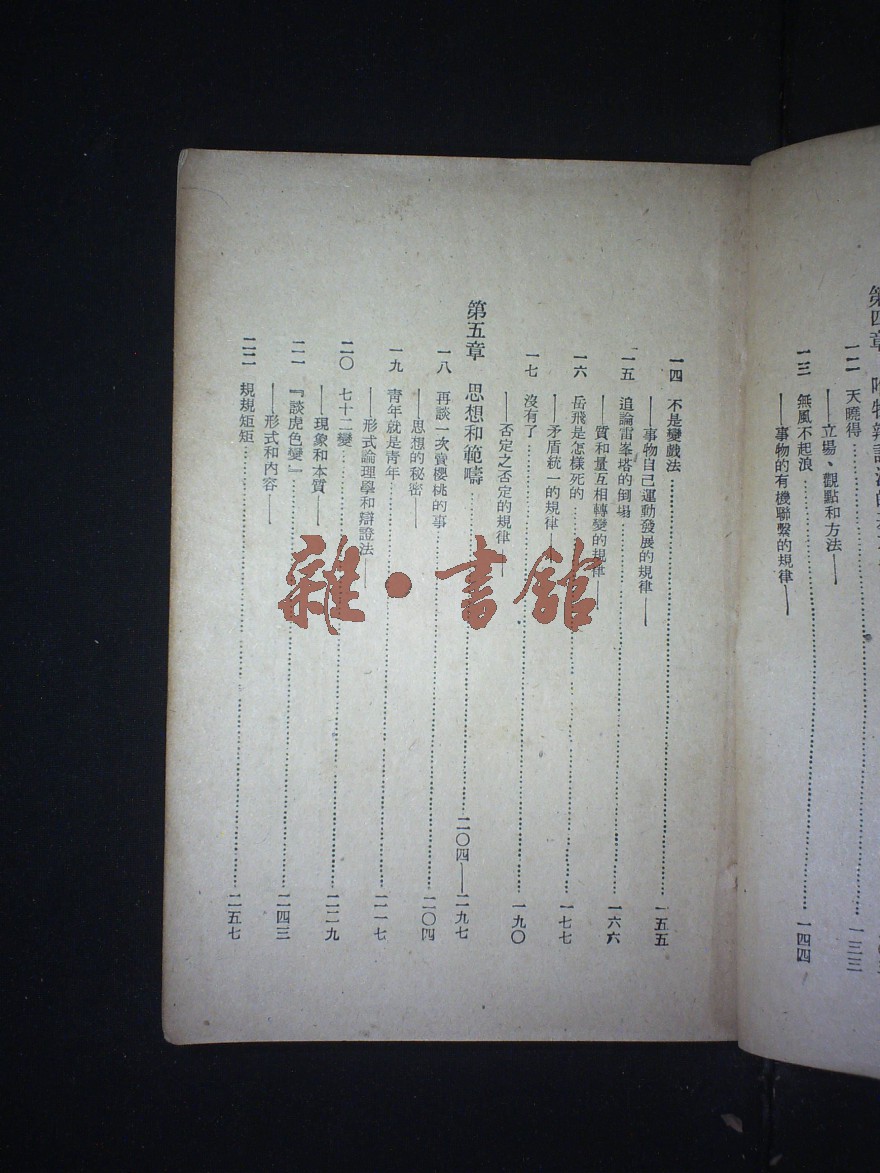 第四章
一二 天曉得……一三三
——立場、觀點和方法——
一三 無風不起浪……一四四
——事物的有機聯繫的規律——
一四 不是變戲法……一五五
——事物自己運動發展的規律——
一五 追論雷峯塔的倒塲……一六六
——質和量互相轉變的規律——
一六 岳飛是怎樣死的……一七七
——矛盾統一的規律——
一七 沒有了……一九〇
——否定之否定的規律——
第五章 思想和範疇……二〇四——二九七
一八 再談一次賣櫻桃的事……二〇四
——思想的秘密——
一九 青年就是青年……二一七
——形式論理學和辯證法——
二〇 七十二變……二二九
——現象和本質——
二一 『談虎色變』……二四三
——形式和內容——
二二 規規矩矩……二五七
雜·書館